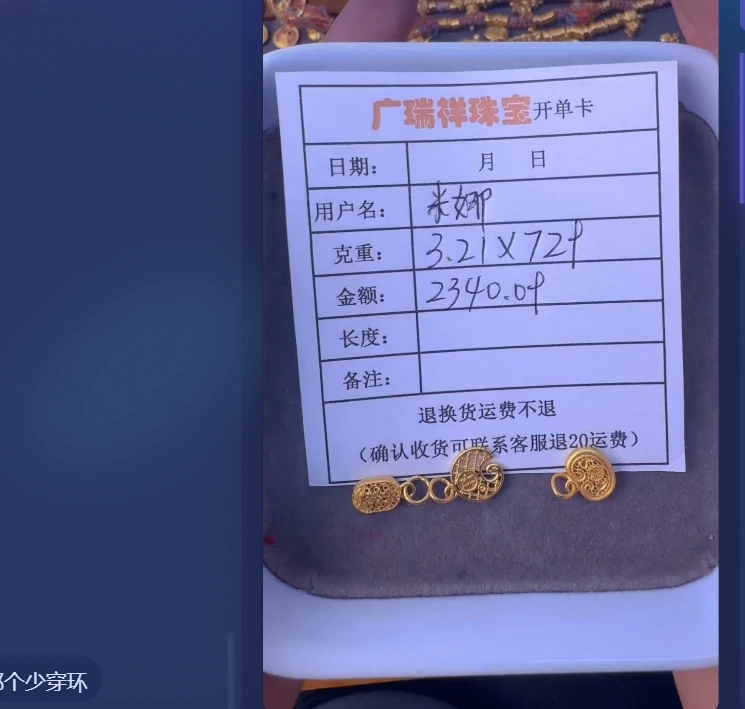 广瑞祥珠宝开单卡
日期： 月 日
用户名： 米娜
克重： 3.21X729
金额： 2340.09
长度：
备注：
退换货运费不退
（确认收货可联系客服退20运费）
个少穿环